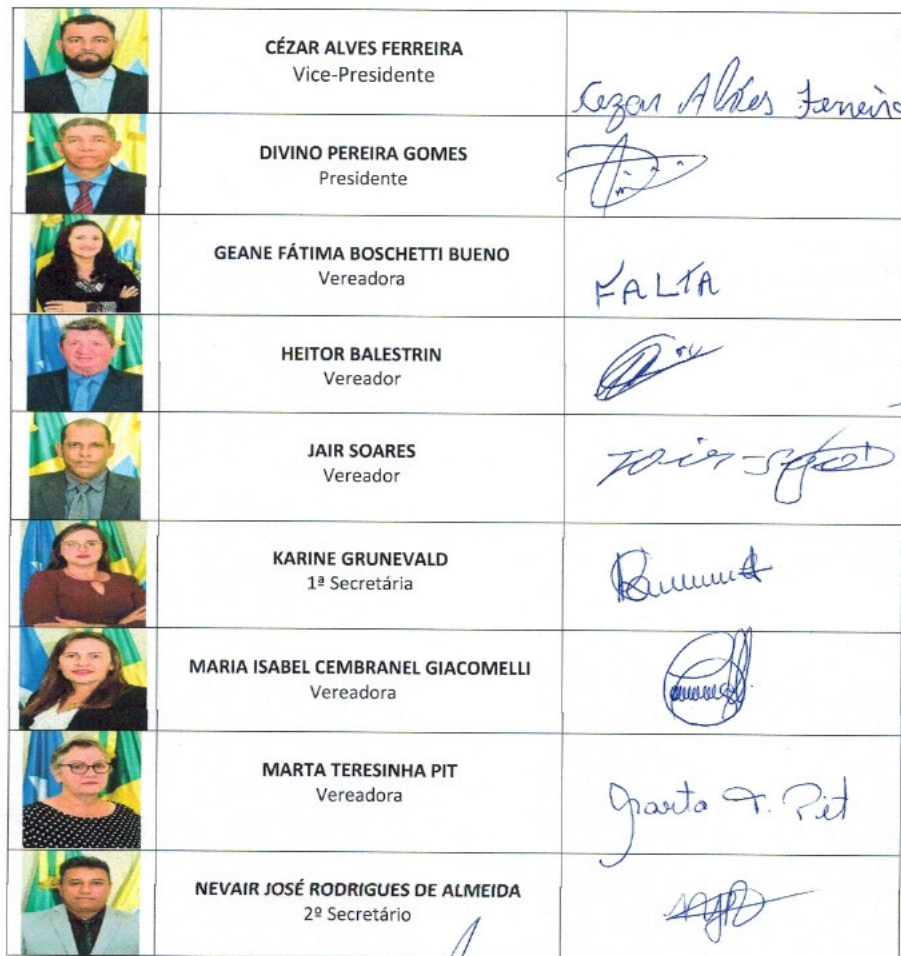 CÉZAR ALVES FERREIRA
Vice-Presidente
Cezar Alves Ferreira
DIVINO PEREIRA GOMES
Presidente
GEANE FÁTIMA BOSCHETTI BUENO
Vereadora
FALTA
HEITOR BALESTRIN
Vereador
JAIR SOARES
Vereador
KARINE GRUNEVALD
1ª Secretária
MARIA ISABEL CEMBRANEL GIACOMELLI
Vereadora
MARTA TERESINHA PIT
Vereadora
Marta T. Pit
NEVAIR JOSÉ RODRIGUES DE ALMEIDA
2º Secretário